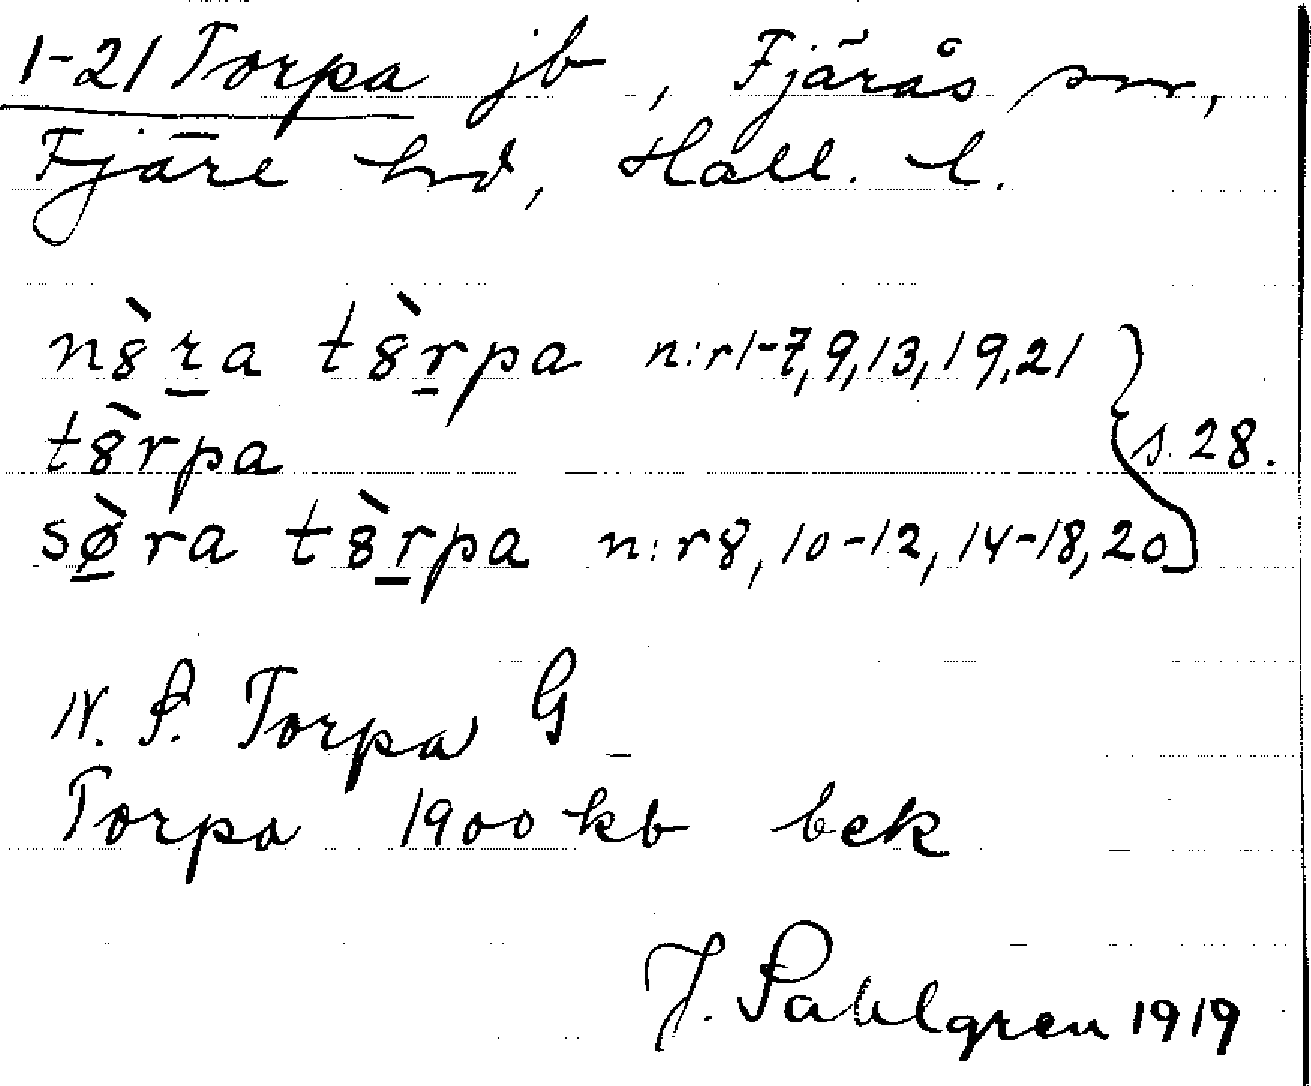 1-21 Torpa jb, Fjärås sn,
Fjäre hd, Hall. l.
nȣ̀ra tȣ̀rpa n:r 1-7, 9, 13, 19, 21
tȣ̀rpa s. 28.
sø̀ra tȣ̀rpa n:r 8, 10-12, 14-18, 20
N. S. Torpa G
Torpa 1900 kb bek
J. Sahlgren 1919